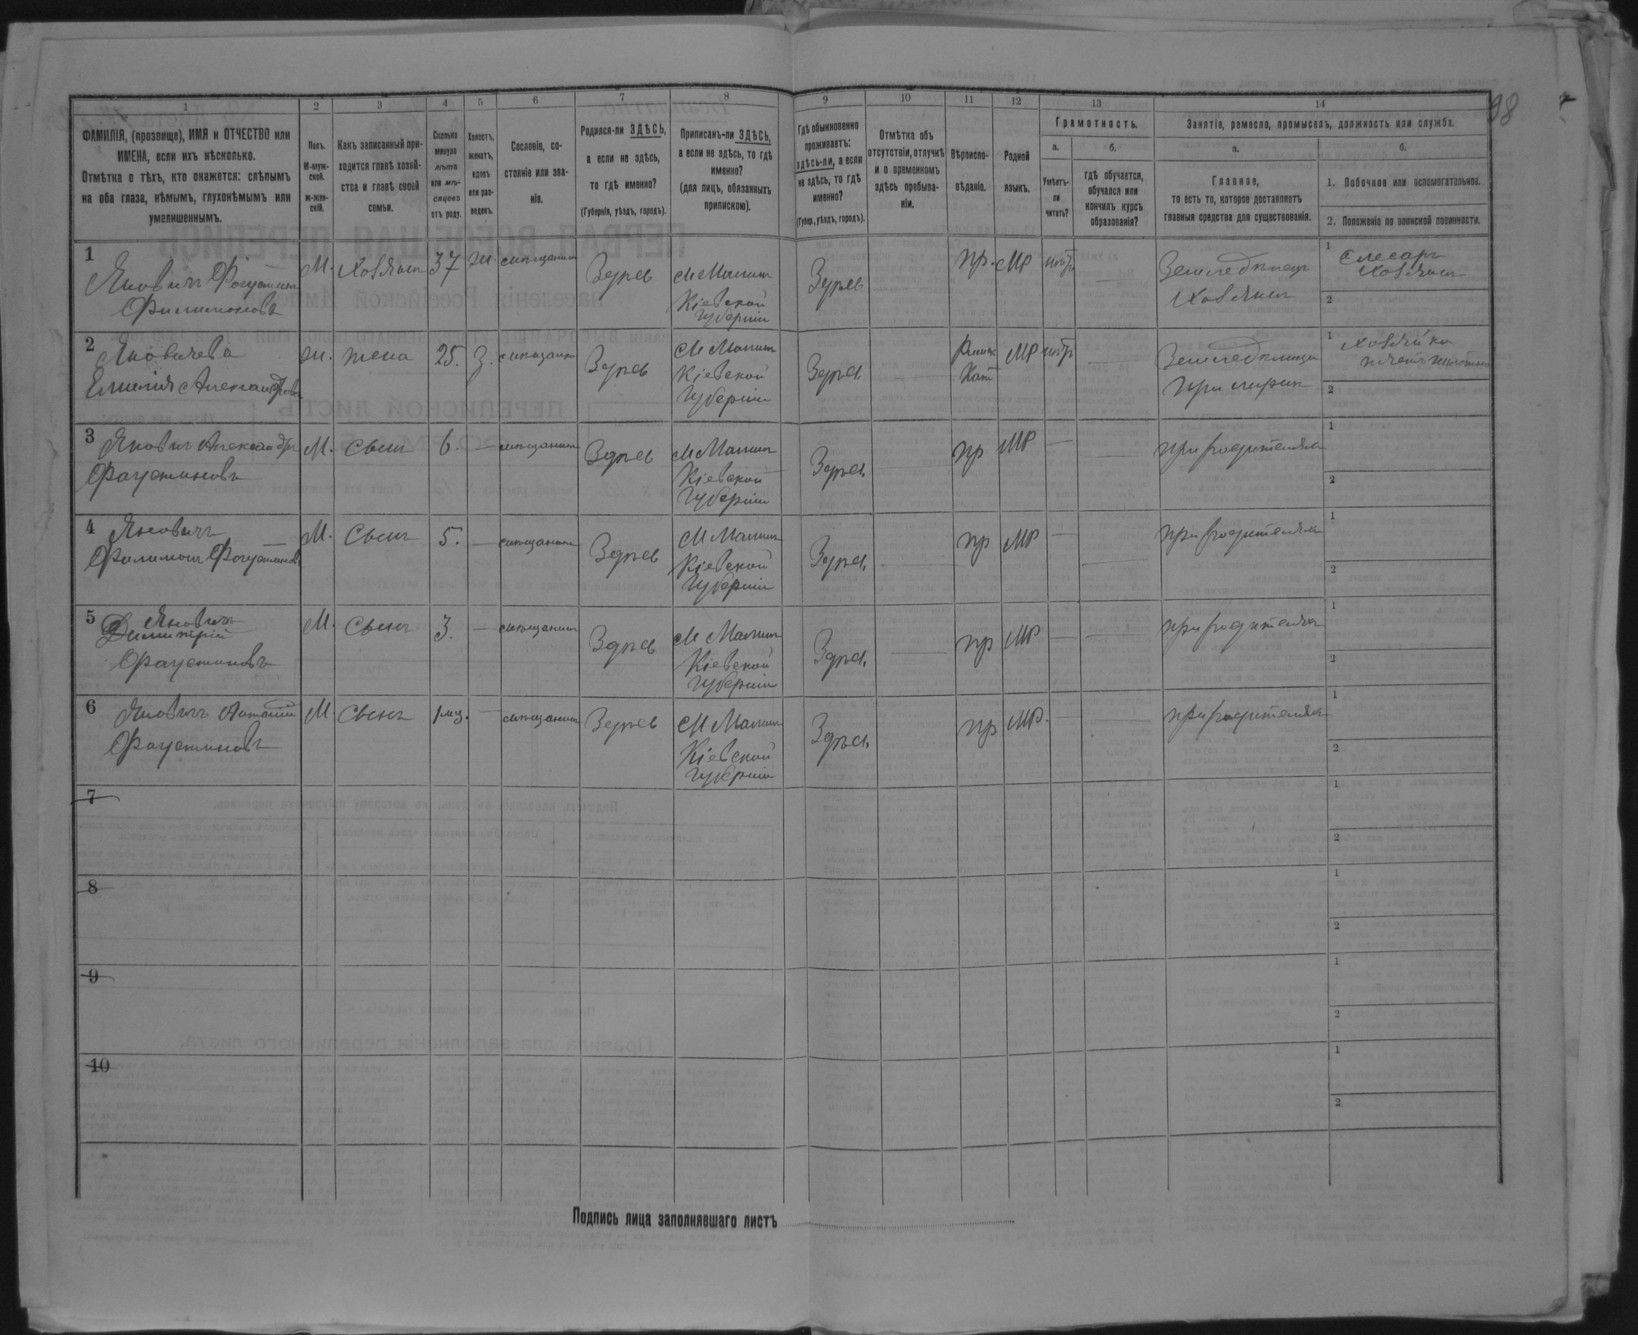 1 2 3 4 5 6 7 8 9 10 11 12 13 14
98
ФАМИЛІЯ, (прозвище), ИМЯ и ОТЧЕСТВО или
ИМЕНА, если ихъ нѣсколько.
Отмѣтка о тѣхъ, кто окажется: слѣпымъ
на оба глаза, нѣмымъ, глухонѣмымъ или
умалишеннымъ.
Полъ.
М-муж-
ской.
ж-жен-
скій.
Какъ записанный при-
ходится главѣ хозяй-
ства и главѣ своей
семьи.
Сколько
минуло
лѣтъ
или мѣ-
сяцевъ
отъ роду.
Холостъ,
женатъ,
вдовъ
или раз-
веденъ.
Сословіе, со-
стояніе или зва-
ніе.
Родился-ли ЗДѢСЬ,
а если не здѣсь,
то гдѣ именно?
(Губернія, уѣздъ, городъ).
Приписанъ-ли ЗДѢСЬ,
а если не здѣсь, то гдѣ
именно?
(для лицъ, обязанныхъ
припискою).
Гдѣ обыкновенно
проживаетъ:
здѣсь-ли, а если
не здѣсь, то гдѣ
именно?
(Губер., уѣздъ, городъ).
Отмѣтка объ
отсутствіи, отлучкѣ
и о временномъ
здѣсь пребыва-
ніи.
Вѣроиспо-
вѣданіе.
Родной
языкъ.
Грамотность.
а.
Умѣетъ-
ли
читать?
б.
гдѣ обучается,
обучался или
кончилъ курсъ
образованія?
Занятіе, ремесло, промыселъ, должность или служба.
а.
Главное,
то есть то, которое доставляетъ
главныя средства для существованія.
б.
1. Побочное или вспомогательное.
2. Положеніе по воинской повинности.
1
Яковичъ
Филимоновъ
М. Хозяинъ 37 ж мѣщанинъ
Здѣсь
М Малинъ
Кіевской
Губерніи
Здѣсь
пр. МР
Земледѣлецъ
Хозяинъ
1 Слесарь
Хозяинъ
2
2
Яковичева
Емилія Александров
ж. жена 25. З.
Здѣсь
М Малинъ
Кіевской
Губерніи
Здѣсь
Кат
МР
при мужѣ
1 Хозяйка
2
3 Яковичъ Александръ
Фаустиновъ
М. Сынъ 6. — мѣщанинъ
Здѣсь
М Малинъ
Кіевской
Губерніи
Здѣсь
пр МР — —
при родителяхъ
1
2
4 Яковичъ
Филимонъ Фаустиновъ
М. Сынъ 5. — мѣщанинъ
Здѣсь
М Малинъ
Кіевской
Губерніи
Здѣсь —
пр МР — —
при родителяхъ
1
2
5 Яковичъ
Димитрій
Фаустиновъ
М. Сынъ 3. — мѣщанинъ
Здѣсь
М Малинъ
Кіевской
Губерніи
Здѣсь —
пр МР — —
при родителяхъ
1
2
6 Яковичъ Антоній
Фаустиновъ
М Сынъ 1 мц. — мѣщанинъ
Здѣсь
М Малинъ
Кіевской
Губерніи
Здѣсь
пр МР. — —
при родителяхъ
1
2
7
1
2
8
1
2
9
1
2
10
1
2
Подпись лица заполнявшаго листъ